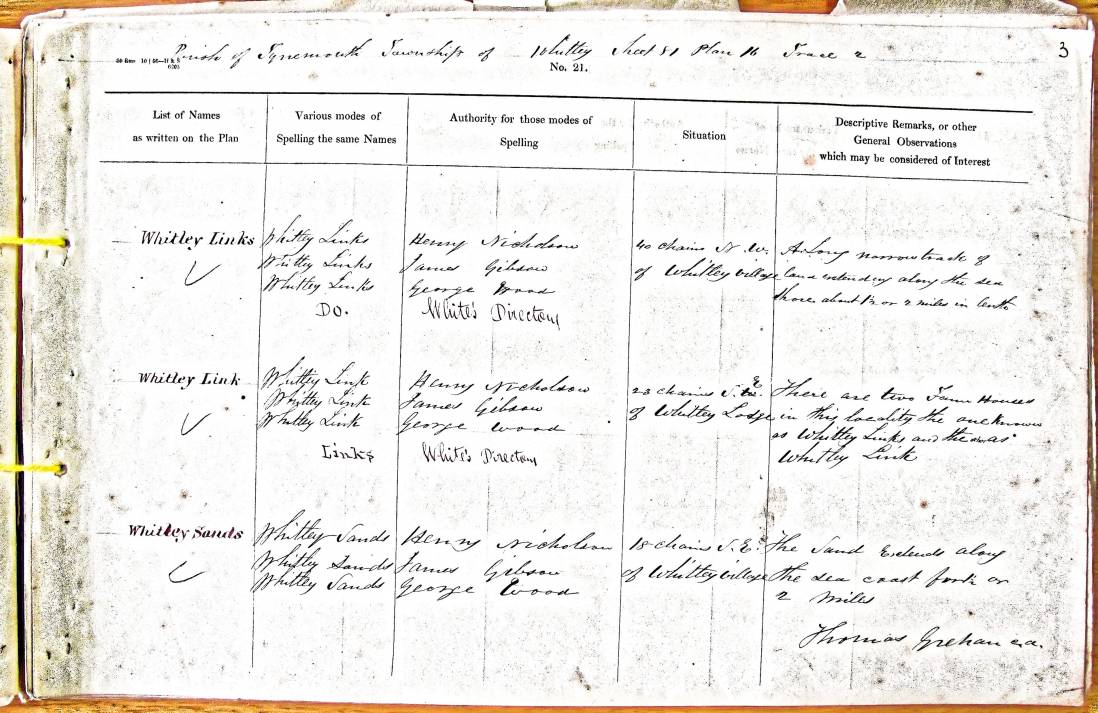 3
Parish of Tynemouth Township of Whitley Sheet 81 Plan 16 Trace 2
No. 21.
List of Names
as written on the Plan
Various modes of
Spelling the same Names
Authority for those modes of
Spelling
Situation
Descriptive Remarks, or other
General Observations
which may be considered of Interest
Whitley Links
Whitley Links
Whitley Links
Whitley Links
Do.
Henry Nicholson
James Gibson
George Wood
White's Directory
40 chains N. W.
of Whitley village
A Long narrow track of
land extending along the sea
shore about 1½ or 2 miles in lenth
Whitley Link
Whitley Link
Whitley Link
Whitley Link
Links
Henry Nicholson
James Gibson
George Wood
White's Directory
23 chains S. E.
of Whitley Lodge
There are two Farm Houses
in this locality the one known
as Whitley Links and the as
Whitley Link
Whitley Sands
Whitley Sands
Whitley Sands
Whitley Sands
Henry Nicholson
James Gibson
George Wood
18 chains S. E.
of Whitley village
The Sand Extends along
the sea coast for or
2 miles
Thomas Grehan c.a.